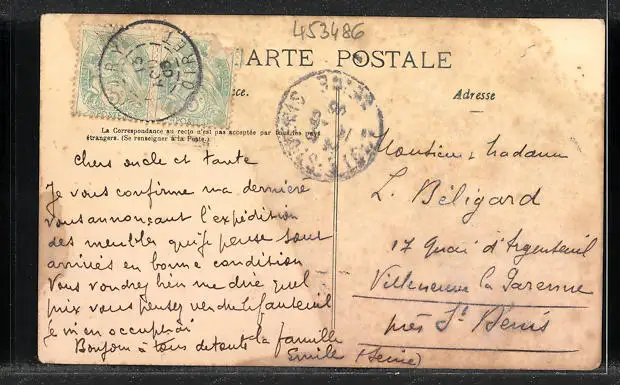 453486
CARTE POSTALE
Adresse
La Correspondance au recto n'est pas acceptée par tous les pays
étrangers. (Se renseigner à la Poste.)
LOIRET
Chers oncle et tante
Je vous confirme ma dernière
vous annonçant l'expédition
des meubles qui je pense sont
arrivés en bonne condition
Vous voudrez bien me dire quel
prix vous pensez vendre le fauteuil
je m'en occuperai
Bonjour à tous de toute la famille
Emile
Monsieur & Madame
L. Béligard
17 Quai d'Argenteuil
Villeneuve la Garenne
près St Denis
(Seine)